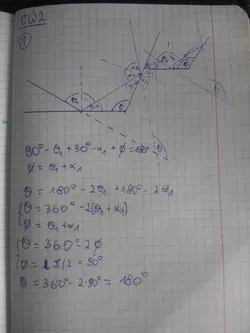 CW2
1
90° - θ₁ + 90° - α₁ + ϕ = 180°
ϕ = θ₁ + α₁
θ = 180° - 2θ₁ + 180° - 2α₁
{ θ = 360° - 2(θ₁ + α₁)
ϕ = θ₁ + α₁
{ θ = 360° - 2ϕ
ϕ = π/2 = 90°
θ = 360° - 2·90° = 180°